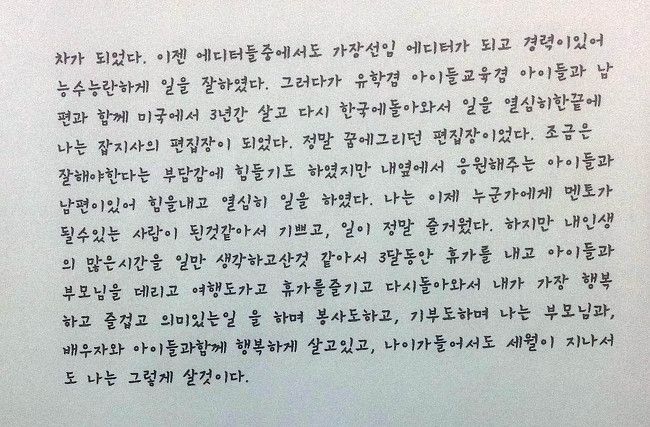 차가 되었다. 이젠 에디터들중에서도 가장선임 에디터가 되고 경력이있어
능수능란하게 일을 잘하였다. 그러다가 유학겸 아이들교육겸 아이들과 남
편과 함께 미국에서 3년간 살고 다시 한국에돌아와서 일을 열심히한끝에
나는 잡지사의 편집장이 되었다. 정말 꿈에그리던 편집장이었다. 조금은
잘해야한다는 부담감에 힘들기도 하였지만 내옆에서 응원해주는 아이들과
남편이있어 힘을내고 열심히 일을 하였다. 나는 이제 누군가에게 멘토가
될수있는 사람이 된것같아서 기쁘고, 일이 정말 즐거웠다. 하지만 내인생
의 많은시간을 일만 생각하고산것 같아서 3달동안 휴가를 내고 아이들과
부모님을 데리고 여행도가고 휴가를즐기고 다시돌아와서 내가 가장 행복
하고 즐겁고 의미있는일 을 하며 봉사도하고, 기부도하며 나는 부모님과,
배우자와 아이들과함께 행복하게 살고있고, 나이가들어서도 세월이 지나서
도 나는 그렇게 살것이다.